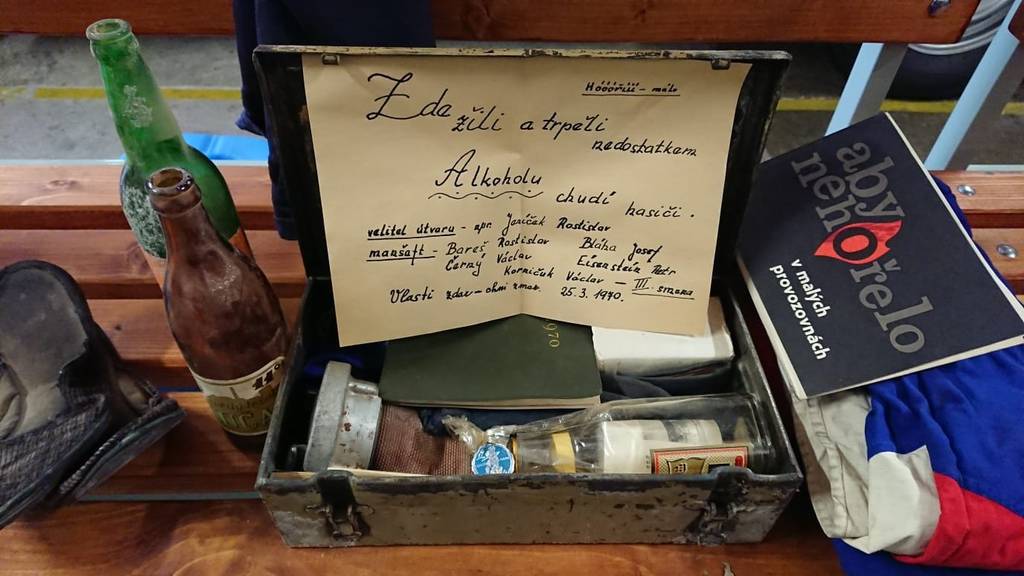 Hóóóříií - málo
Zde
žili a trpěli
nedostatkem
Alkoholu
chudí hasiči.
velitel útvaru - npr. Janíček Rostislav
manšaft - Bareš Rostislav Bláha Josef
Černý Václav Eisenstein Petr
Korníček Václav - III. směna
Vlasti zdar - ohni zmar. 25.3.1970.
aby
nehořelo
v malých
provozovnách
1970
11°